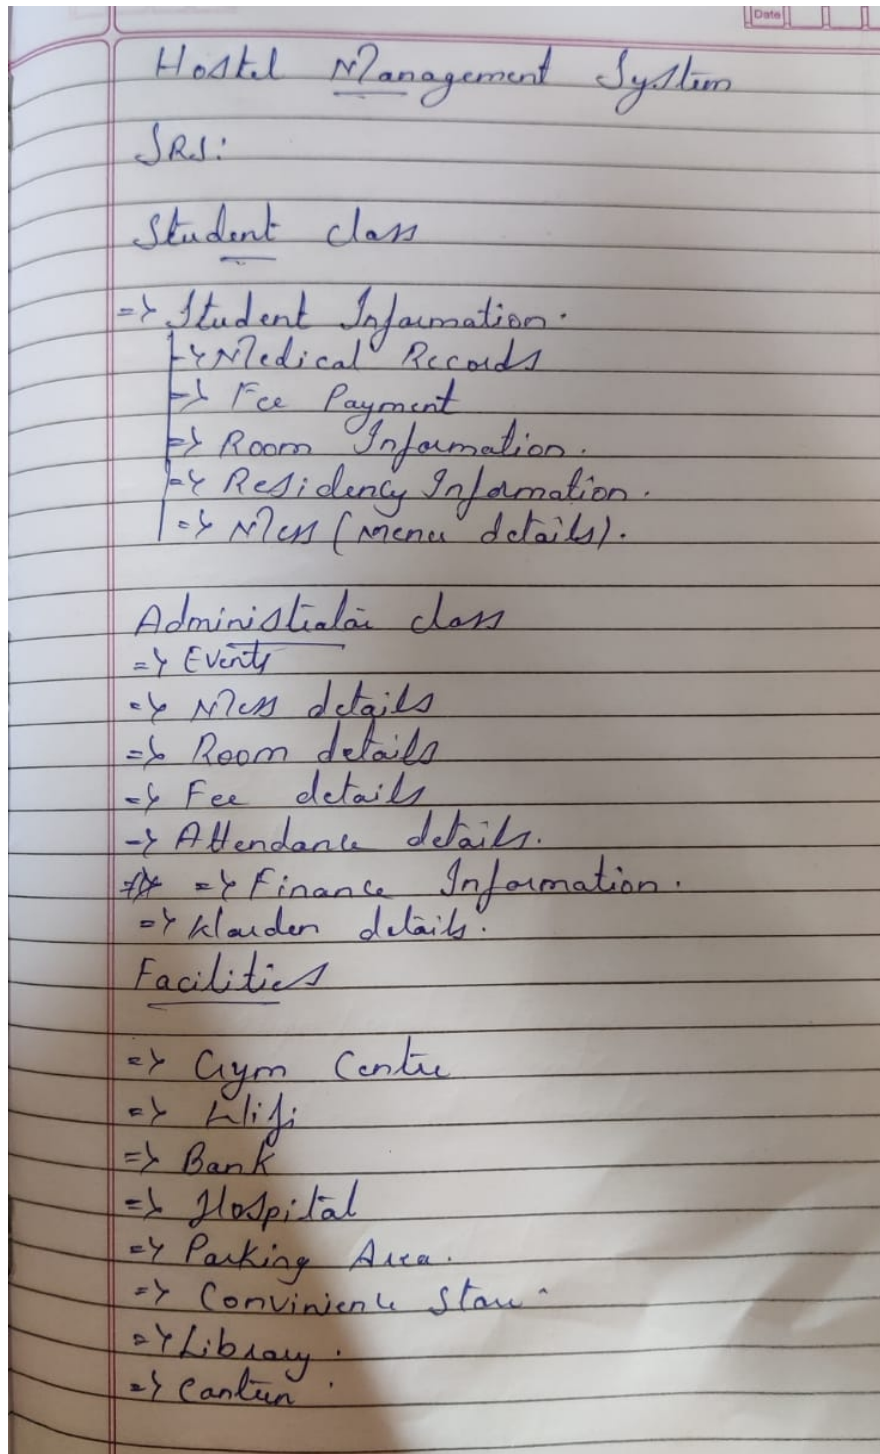 Date
Hostel Management System
SRS:
Student class
=> Student Information.
=> Medical Records
=> Fee Payment
=> Room Information.
=> Residency Information.
=> Mess (menu details).
Administrator class
=> Events
=> Mess details
=> Room details
=> Fee details
-> Attendance details.
=> Finance Information.
=> Warden details.
Facilities
=> Gym Centre
=> Wifi
=> Bank
=> Hospital
=> Parking Area.
=> Convinience Store.
=> Library.
=> Canteen.